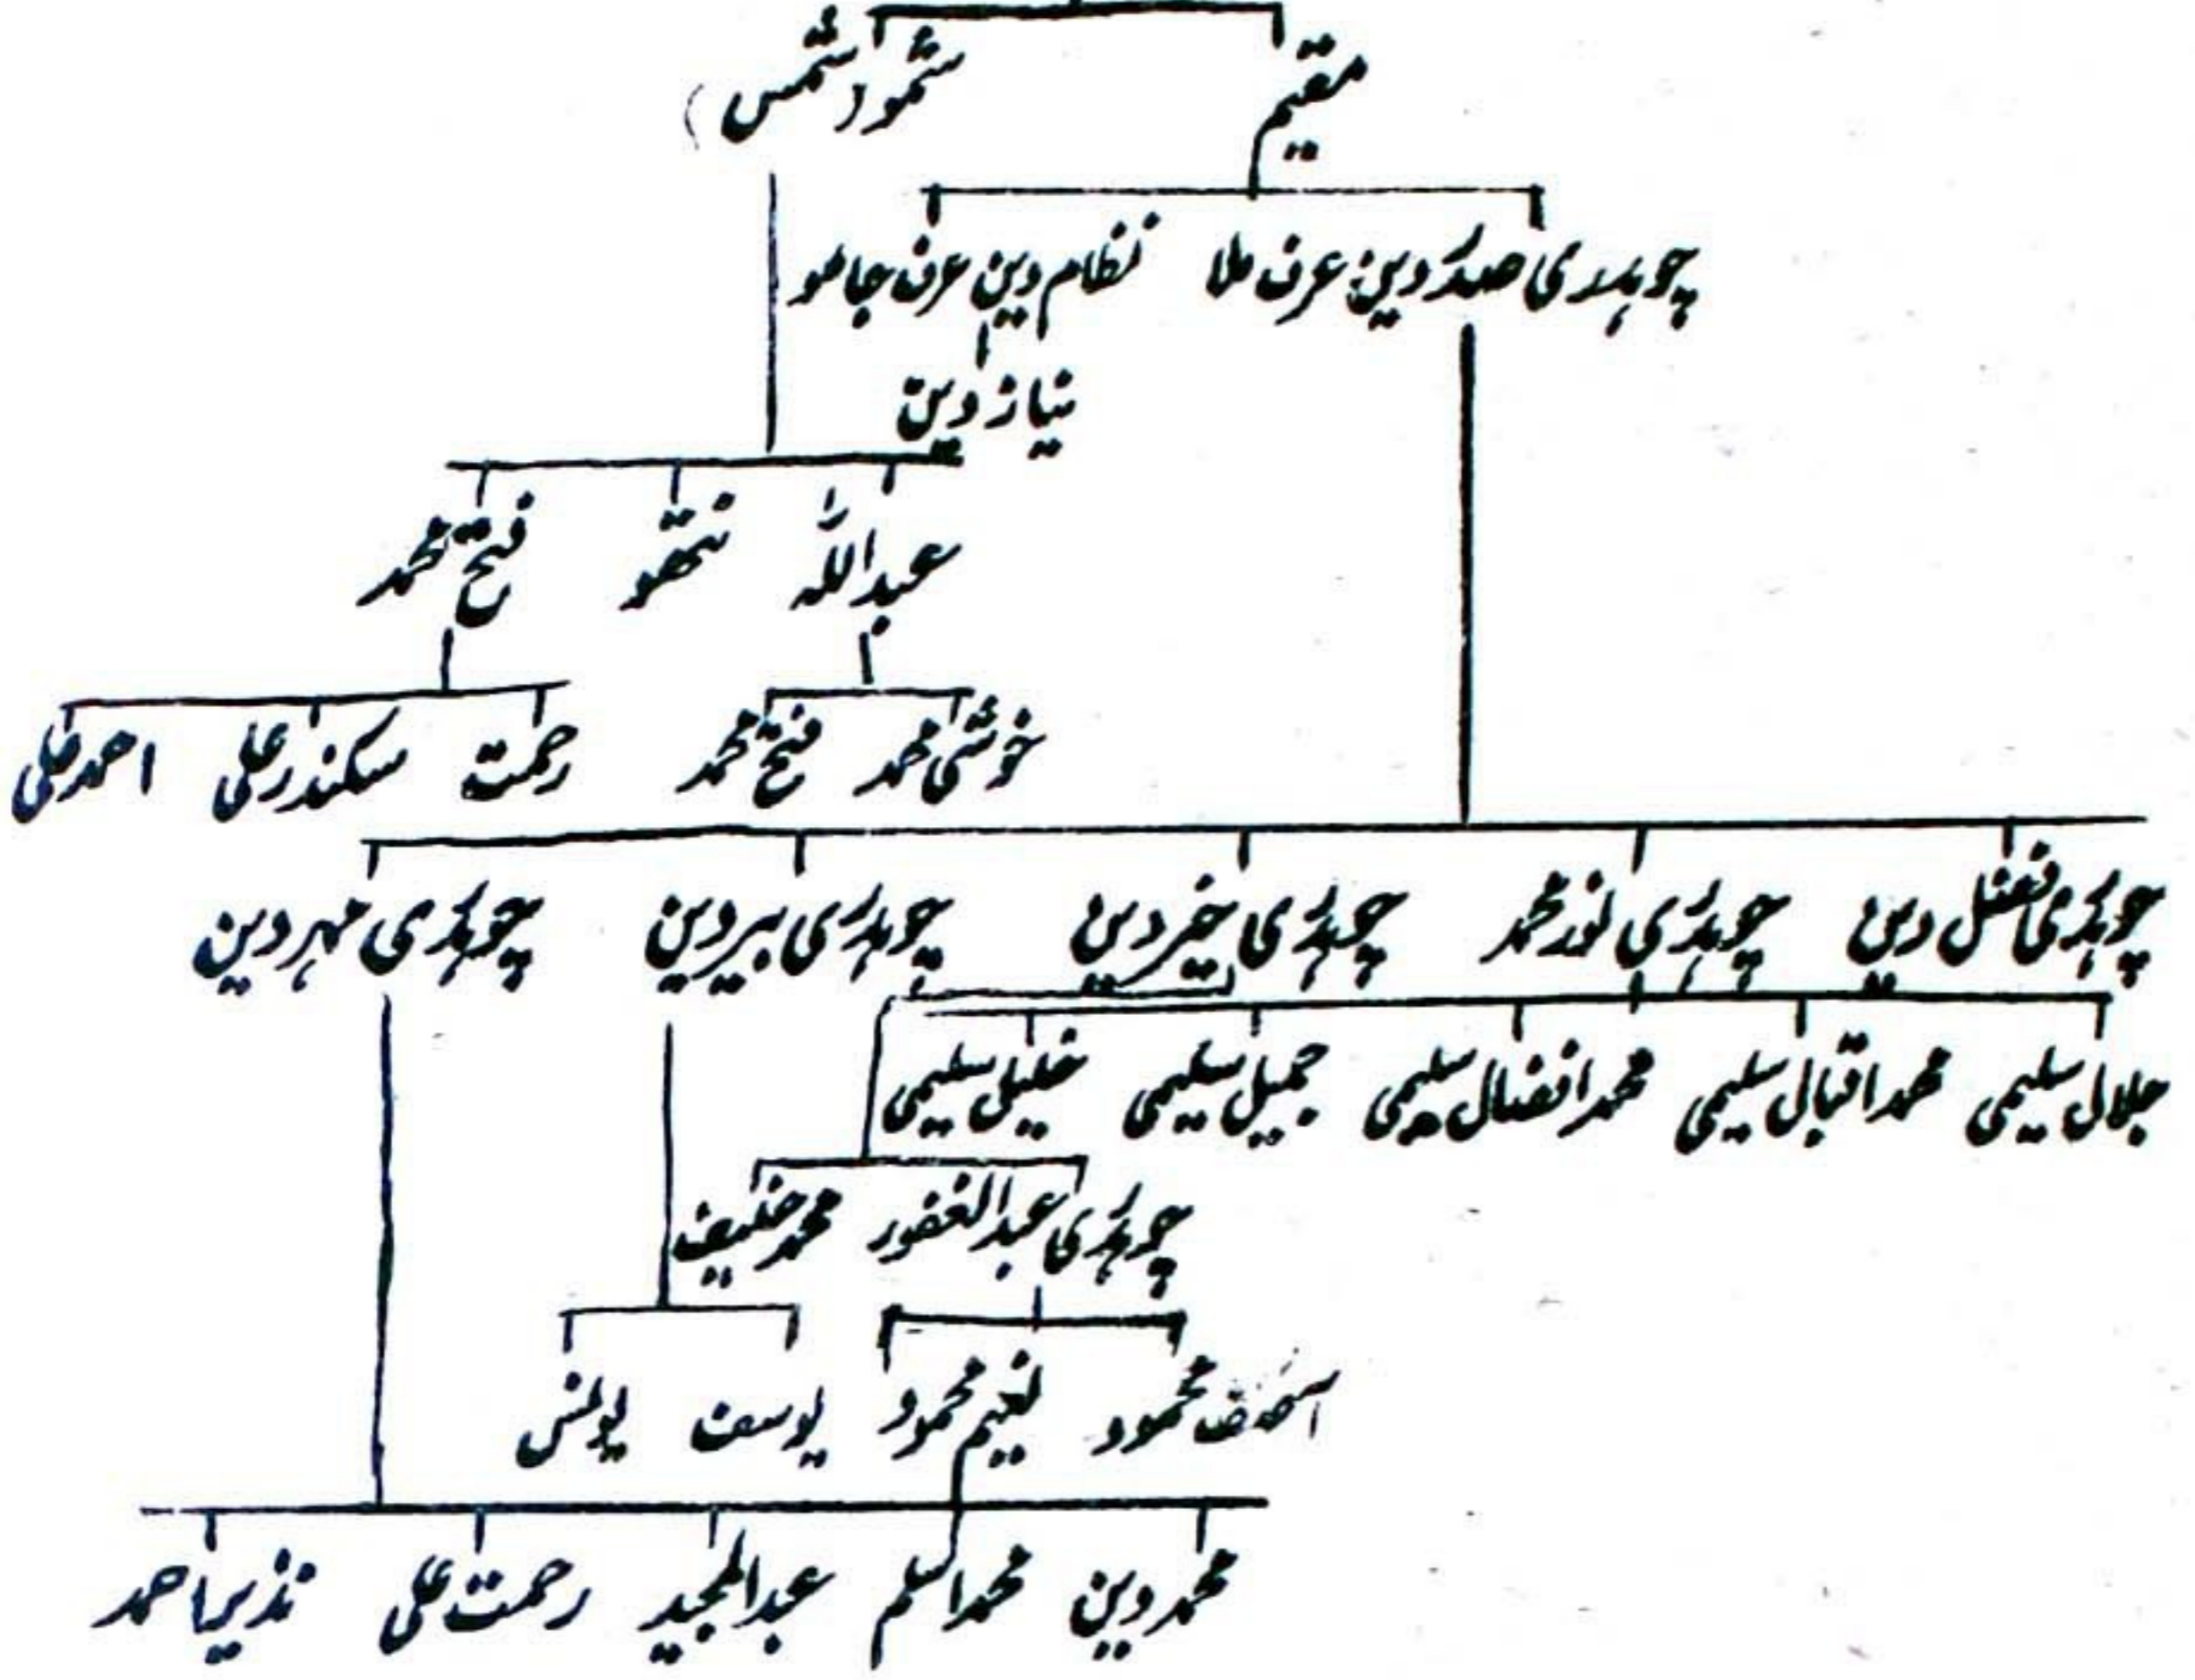 مقیم شمو (شمس)
چوہدری صدر دین عرف ملا نظام دین عرف جامو
نیاز دین
عبداللہ نتھو فتح محمد
خوشی محمد فتح محمد رحمت سکندر علی احمد علی
چوہدری فضل دین چوہدری نور محمد چوہدری خیر دین چوہدری پیر دین چوہدری مہر دین
جلال سلیمی محمد اقبال سلیمی محمد افضال سلیمی جمیل سلیمی خلیل سلیمی
چوہدری عبدالغفور محمد حنیف
آصف محمود نعیم محمود یوسف یونس
محمد دین محمد اسلم عبدالمجید رحمت علی نذیر احمد